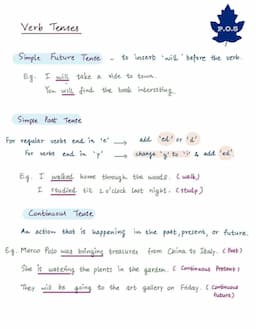 Verb Tenses
P.O.S
Simple Future Tense - to insert 'will' before the verb.
E.g. I will take a ride to town.
You will find the book interesting.
Simple Past Tense
For regular verbs end in 'e' → add 'ed' or 'd'
For verbs end in 'y' → change 'y' to 'i' & add 'ed'
E.g. I walked home through the woods. (walk)
I studied til 2 o'clock last night. (study)
Continuous Tense
An action that is happening in the past, present, or future.
E.g. Marco Polo was bringing treasures from China to Italy. (Past)
She is watering the plants in the garden. (Continuous Present)
They will be going to the art gallery on Friday. (Continuous Future)